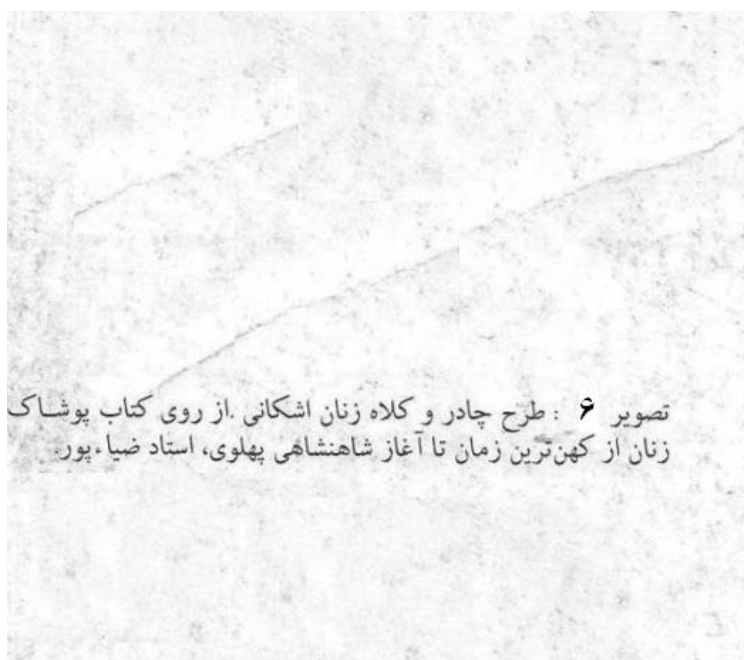 تصویر ۶ : طرح چادر و کلاه زنان اشکانی .از روی کتاب پوشـاک
زنان از کهن‌ترین زمان تا آغاز شاهنشاهی پهلوی، استاد ضیاءپور.